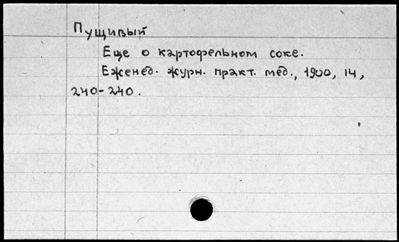 Пущивый
Еще о картофельном соке.
Еженед. журн. практ. мед., 1900, 14,
240-240.